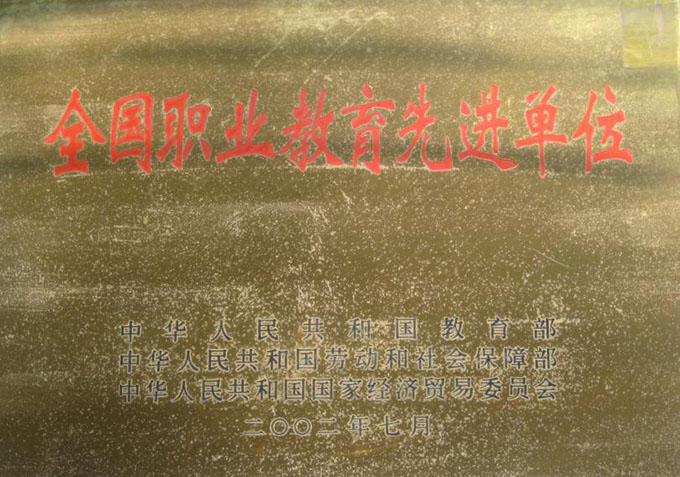 全国职业教育先进单位
中华人民共和国教育部
中华人民共和国劳动和社会保障部
中华人民共和国国家经济贸易委员会
二〇〇二年七月